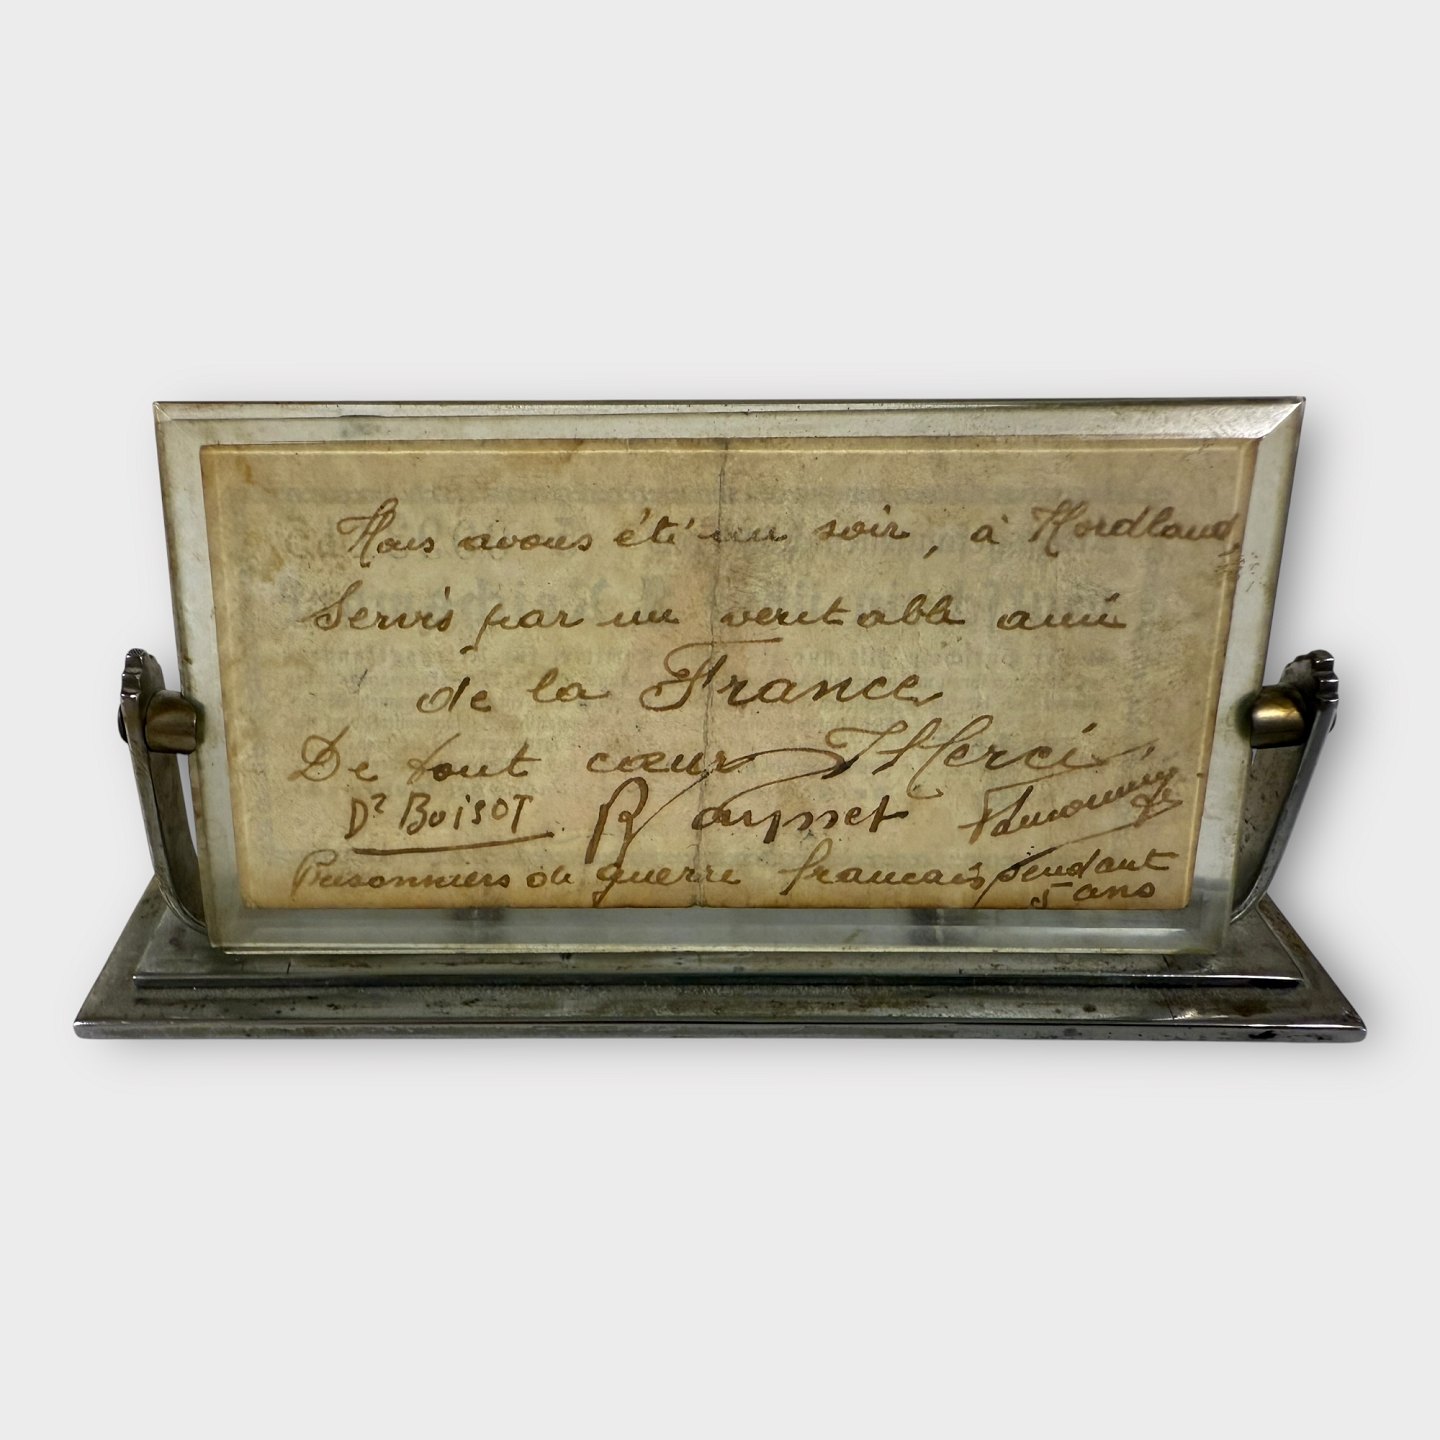 Nous avons été un soir, à Nordland,
Servis par un veritable ami
de la France
De tout cœur Merci
Dr BOISOT Raysset
Prisonniers de guerre francais pendant
5 ans